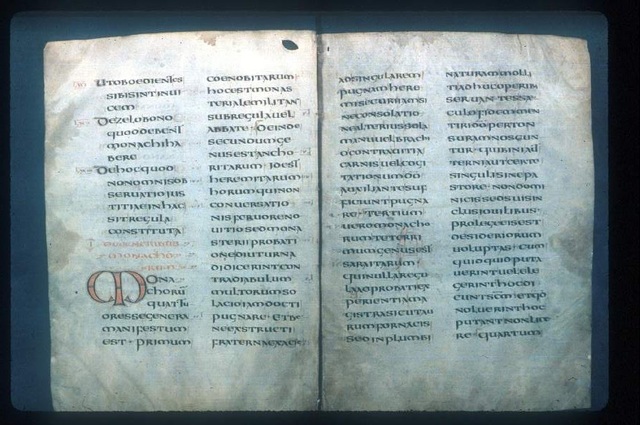 UTOBOEDIENTES
SIBISINTINUI
CEM
DEZELOBONO
QUODDEBENT
MONACHIHA
BERE
DEHOCQUOD
NONOMNISOB
SERUATIOIUS
TITIAEINHAC
SITREGULA
CONSTITUTA
DEGENERIBUS
MONACHO
RUM
MONA
CHORU
QUATTU
ORESSEGENERA
MANIFESTUM
EST PRIMUM
COENOBITARUM
HOCESTMONAS
TERIALEMILITAN
SUBREGULAUEL
ABBATE DEINDE
SECUNDUMGE
NUSESTANCHO
RITARUM IDEST
HEREMITARUM
HORUMQUINON
CONUERSATIO
NISFERUORENO
UITIOSEDMONA
STERIIPROBATI
ONEDIUTURNA
DIDICERINTCON
TRADIABULUM
MULTORUMSO
LACIOIAMDOCTI
PUGNARE ETBE
NEEXSTRUCTI
FRATERNAEXACIE
ADSINGULAREM
PUGNAMHERE
MISECURIIAMSI
NECONSOLATIO
NEALTERIUSSOLA
MANUUELBRACH
OCONTRAUITIA
CARNISUELCOGI
TATIONUMDO
AUXILIANTESUF
FICIUNTPUGNA
RE TERTIUM
UEROMONACHO
RUMTETERRI
MUMGENUSEST
SARAITARUM
QUINULLAREGU
LAADPROBATIEX
PERIENTIAMA
GISTRASICUTAU
RUMFORNACIS
SEDINPLUMBI
NATURAMOLLI
TIADHUCOPERIB
SERUANTESSAE
CULOFIDEMMEN
TIRIDOPERTON
SURAMNOSCUN
TUR QUIBINIAUT
TERNIAUTCERTE
SINGULISINEPA
STORE NONDOMI
NICISSEDSUISIN
CLUSIOUILIBUS
PROLEGEEISEST
DESIDERIORUM
UOLUPTAS CUM
QUIDQUIDPUTA
UERINTUELELE
GERINTHOCDI
CUNTSCMETQD
NOLUERINTHOC
PUTANTNONLICE
RE QUARTUM